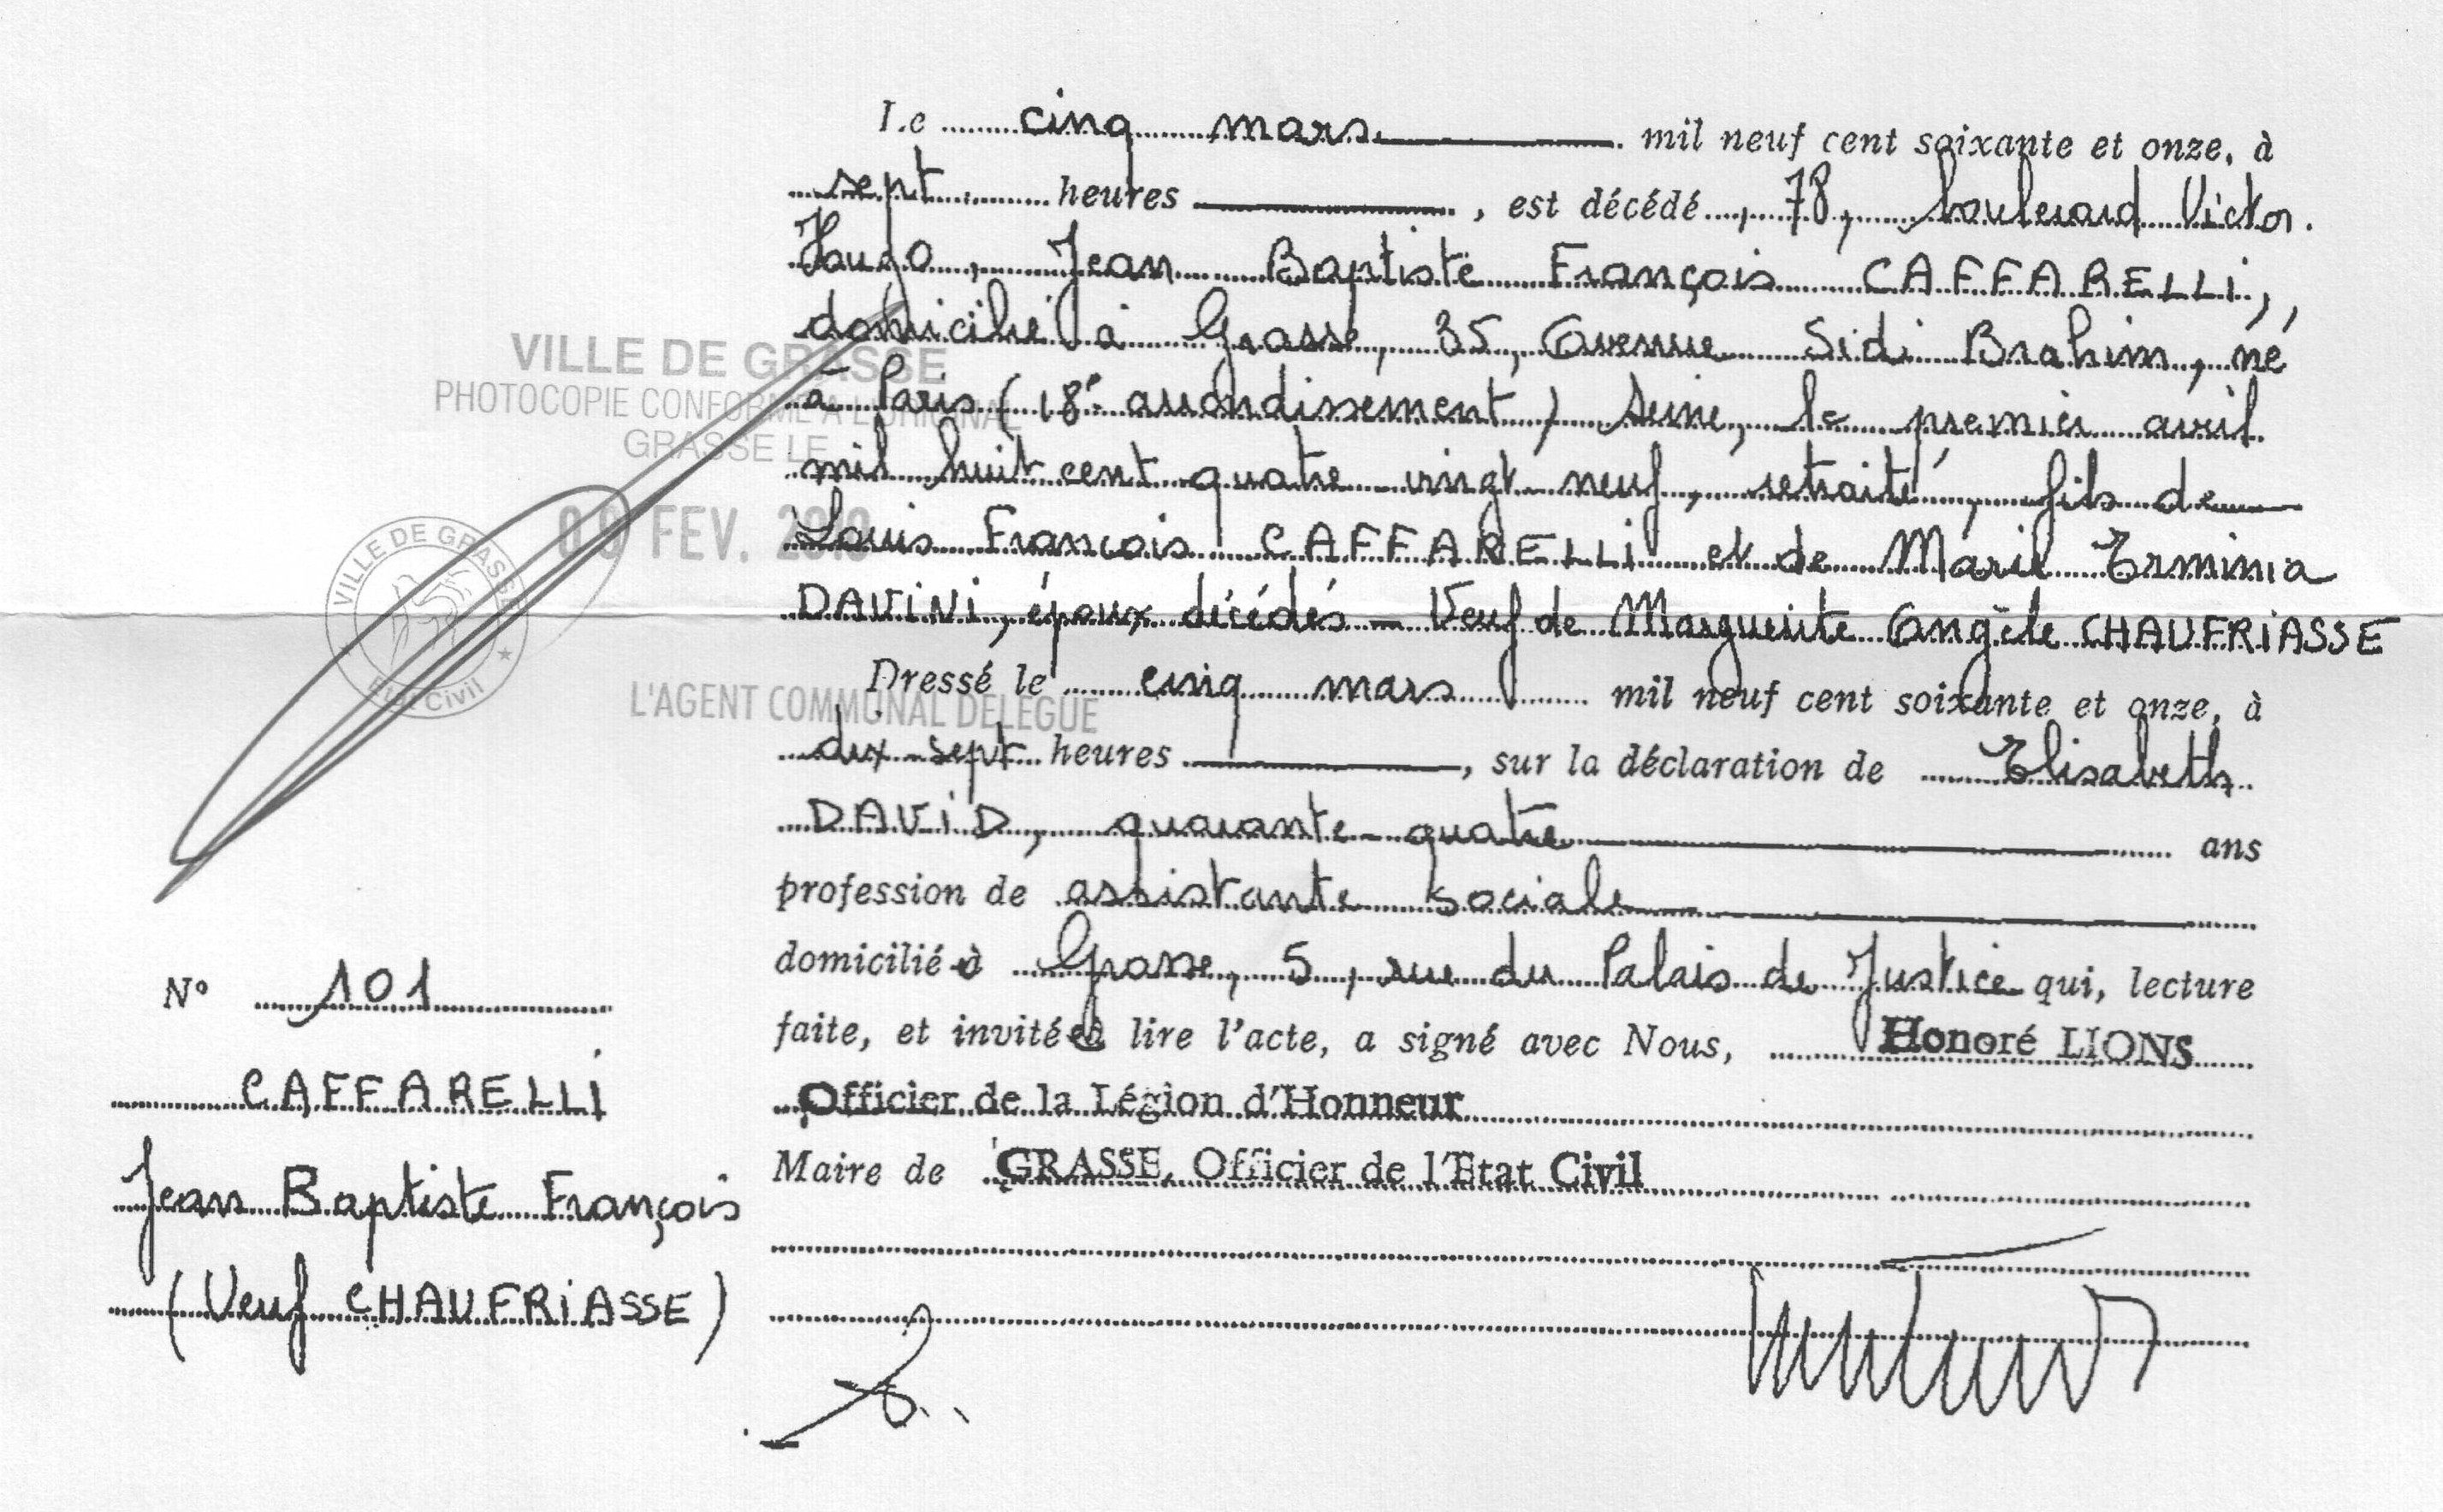 Le cinq mars mil neuf cent soixante et onze, à
sept heures , est décédé, 78, boulevard Victor
Hugo, Jean Baptiste François CAFFARELLI,
domicilié à Grasse, 35, Avenue Sidi Brahim, né
à Paris (18e arrondissement) Seine, le premier avril
mil huit cent quatre vingt neuf, retraité, fils de
Louis François CAFFARELLI et de Erminia
DAVINI, époux décédés - Veuf de Marguerite Angèle CHAUFRIASSE
Dressé le cinq mars mil neuf cent soixante et onze, à
dix sept heures , sur la déclaration de Elisabeth
DAVID, quarante quatre ans
profession de assistante sociale
domicilié e à Grasse, 5, rue du Palais de Justice qui, lecture
faite, et invitée à lire l'acte, a signé avec Nous, Honoré LIONS
Officier de la Légion d'Honneur
Maire de GRASSE, Officier de l'Etat Civil
VILLE DE GRASSE
PHOTOCOPIE CONFORME A L'ORIGINAL
GRASSE LE
09 FEV. 2010
VILLE DE GRASSE
Etat Civil
L'AGENT COMMUNAL DELEGUE
N° 101
CAFFARELLI
Jean Baptiste François
(Veuf CHAUFRIASSE)